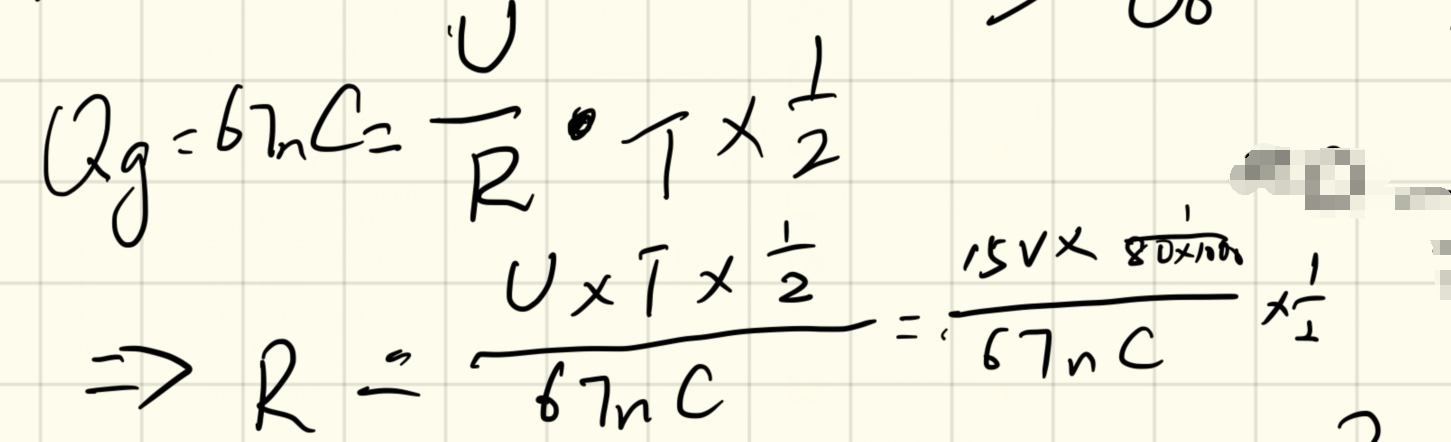 Qg = 67nC = U/R • T × 1/2
⇒ R = (U × T × 1/2)/(67nC) = (15V × 1/(80×1000))/(67nC) × 1/2